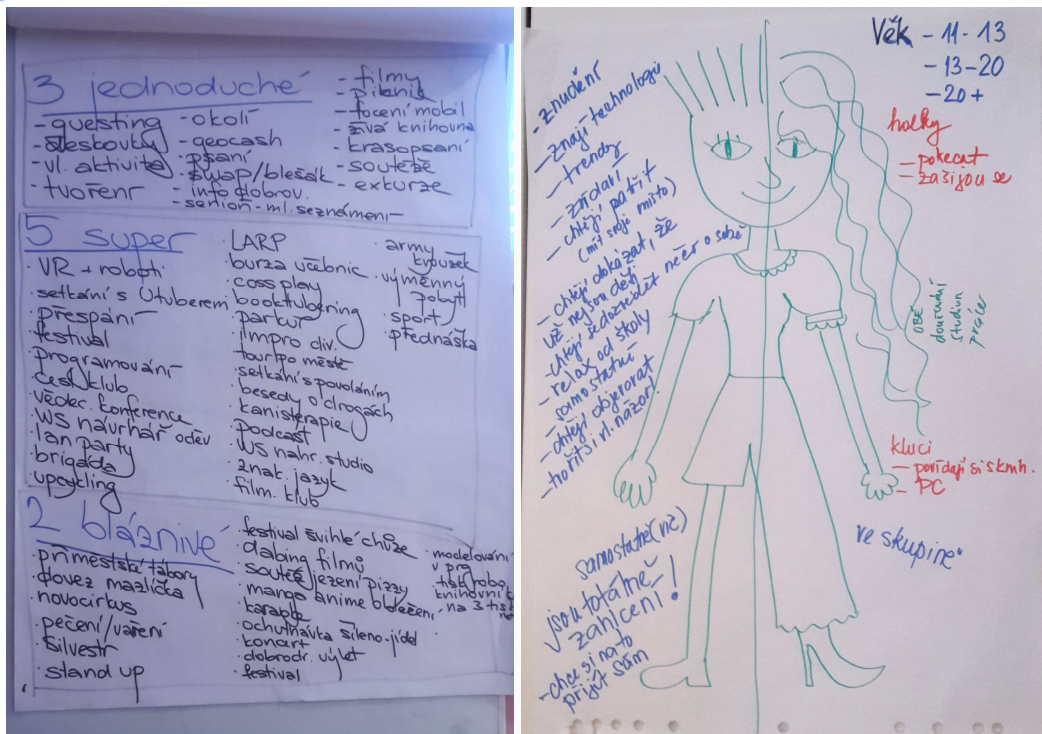 3 jednoduché
- questing
- deskovky
- vl. aktivita
- tvoření
- okolí
- geocash
- psaní
- swap/blešák
- info dobrov.
- senioři - ml. seznámení
- filmy
- piknik
- focení mobil
- živá knihovna
- krasopsaní
- soutěže
- exkurze
5 super
· VR + roboti
· setkání s Utuberem
· přespání
· festival
· programování
· čest. klub
· vědec. konference
· WS návrhář oděv
· lan party
· brigáda
· upcykling
· LARP
· burza učebnic
· coss play
· booktubering
· parkur
· impro div.
· tour po městě
· setkání s povoláním
· besedy o drogách
· kanisterapie
· podcast
· WS nahr. studio
· znak. jazyk
· film. klub
· army kroužek
· výměnný pobyt
· sport
· přednáška
2 bláznivé
· příměstské tábory
· dovez mazlíčka
· novocirkus
· pečení/vaření
· Silvestr
· stand up
· festival švihlé chůze
· dabing filmů
· soutěž jezení pizzy
· mango anime oblečení
· karaoke
· ochutnávka šíleno-jídel
· koncert
· dobrodr. výlet
· festival
· modelování
v prg
· tisk robo.
knihovník
na 3 tisk
Věk - 11-13
- 13-20
- 20+
- znudění
- znají technologii
- trendy
- zvídaví
- chtějí patřit
(mít svoje místo)
- chtějí dokázat, že
už nejsou děti
- chtějí se dozvědět něco o sobě
- relax od školy
- samostatní
- chtějí objevovat
- tvořit si vl. názor!
samostatné (víc)
jsou totálně
zahlcení!
- chce si na to
přijít sám
holky
- pokecat
- zašijou se
OBĚ
domácí
studium
práce
kluci
- povídají si skrz h.
- PC
ve skupině